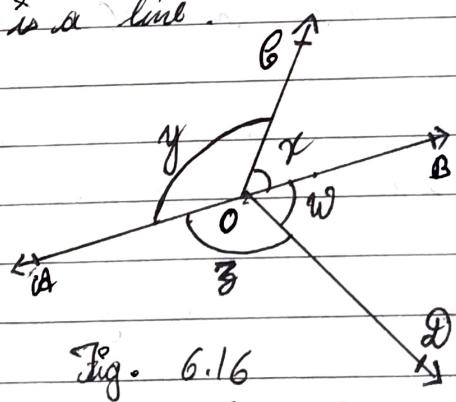 is a line.
C
y
x
B
O
w
A
z
D
Fig. 6.16